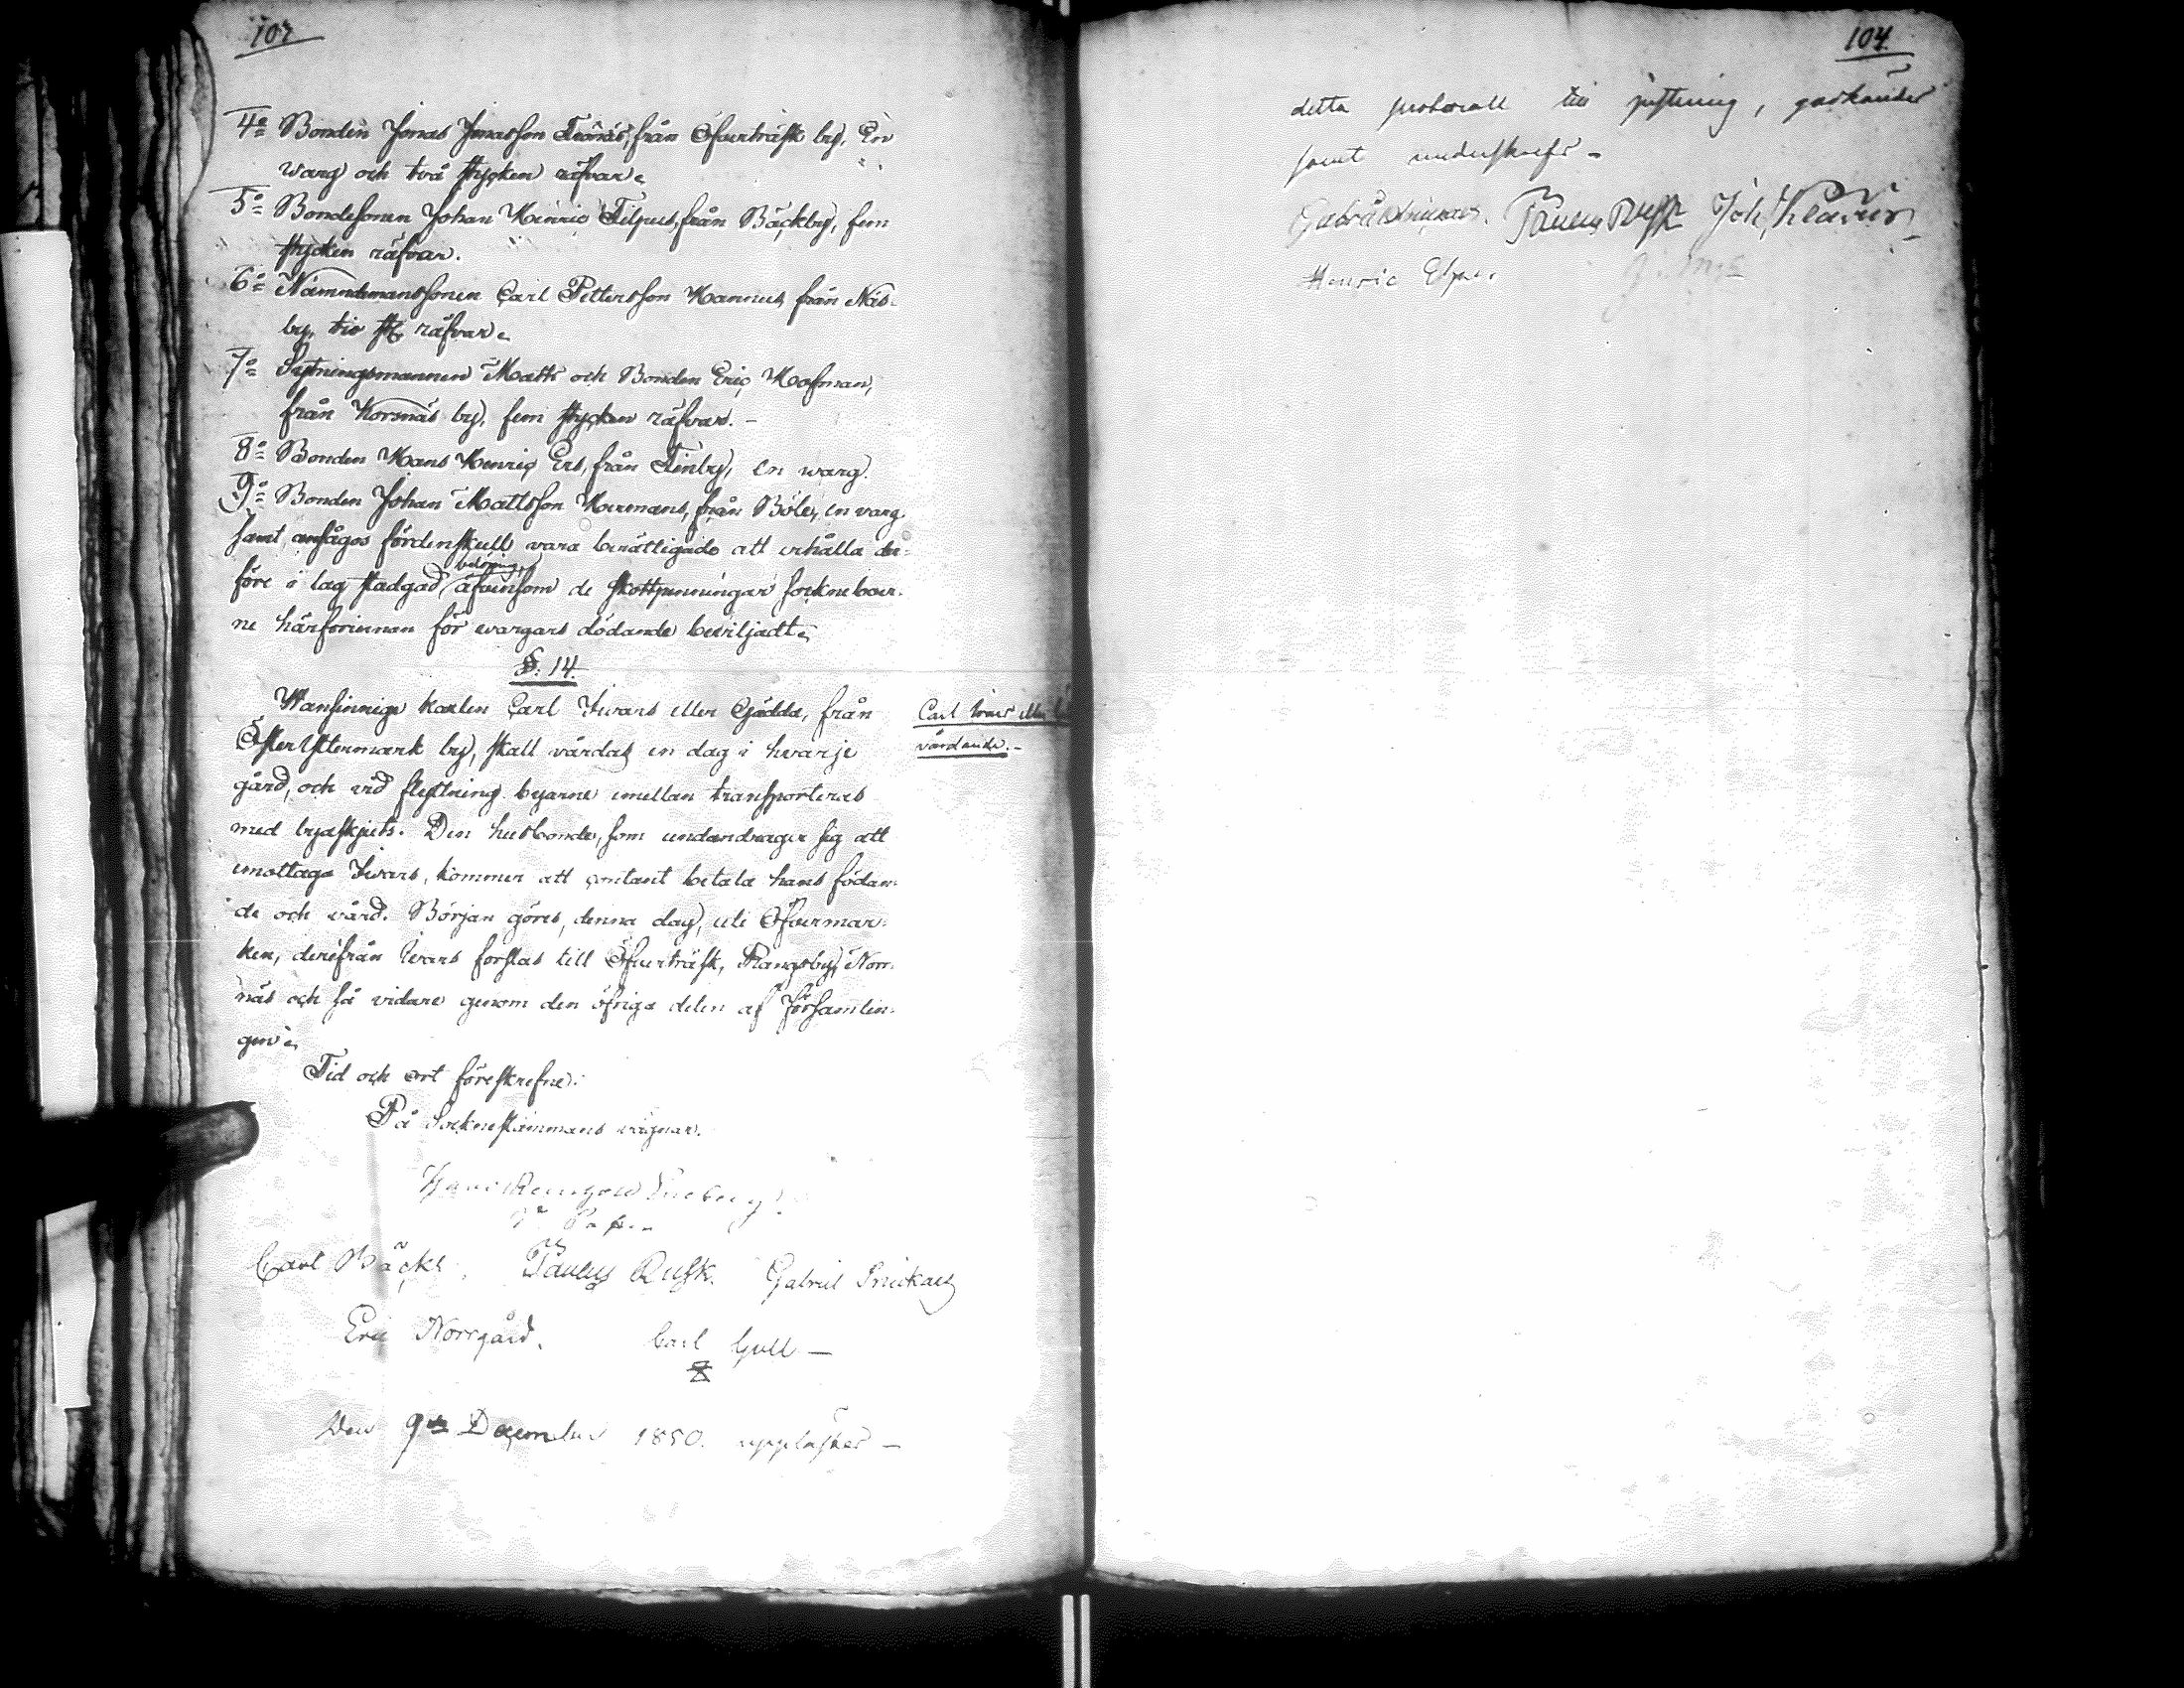 107
4º Bonden Jonas Jonasson Teirnäs, från Öfverträsk by, En
warg och två stycken räfvar.
5º Bondesonen Johan Henric Filpus, från Bäckby, fem
stycken räfvar.
6º Nämndemanssonen Carl Pettersson Hannus, från Näs-
by, tio st. räfvar.
7º Sytningsmannen Matts och Bonden Eric Hofman,
från Korsnäs by, fem stycken räfvar. -
8º Bonden Hans Henric Ers, från Finby, en warg.
9º Bonden Johan Mattsson Hermans, från Böle, en varg.
samt ansågos fördenskull vara berättigade att erhålla der-
före i lag stadgad belöning, äfvensom de skottpenningar sockneboer-
ne härförinnan för wargars dödande beviljadt.
§. 14.
Wansinnige karlen Carl Ivars eller Gädda, från
Öfter Yttermark by, skall vårdas en dag i hvarje
gård, och vid flyttning byarne emellan transporteras
med byaskjuts. Den husbonde, som undandrager sig att
emottaga Ivars, kommer att contant betala hans födan-
de och vård. Början göres, denna dag, uti Öfvermar-
ken, derifrån Ivars forslas till Öfverträsk, Rangsby, Norr-
näs och så vidare genom den öfriga delen af Församlin-
gen.
Carl Ivars eller
vårdande. -
Tid och ort föreskrefne.
På Sockneståmmans vägnar.
Carl Bäck. Påvelus Rusk. Gabriel Snickars
Eric Norrgård. Carl Gull -
Den 9de December 1850. upplästes -
107
detta protocoll till justering, godkändes
samt underskrefs -
Gabriel Snickars. Påvelus Rusk Joh. Klavus
Henric